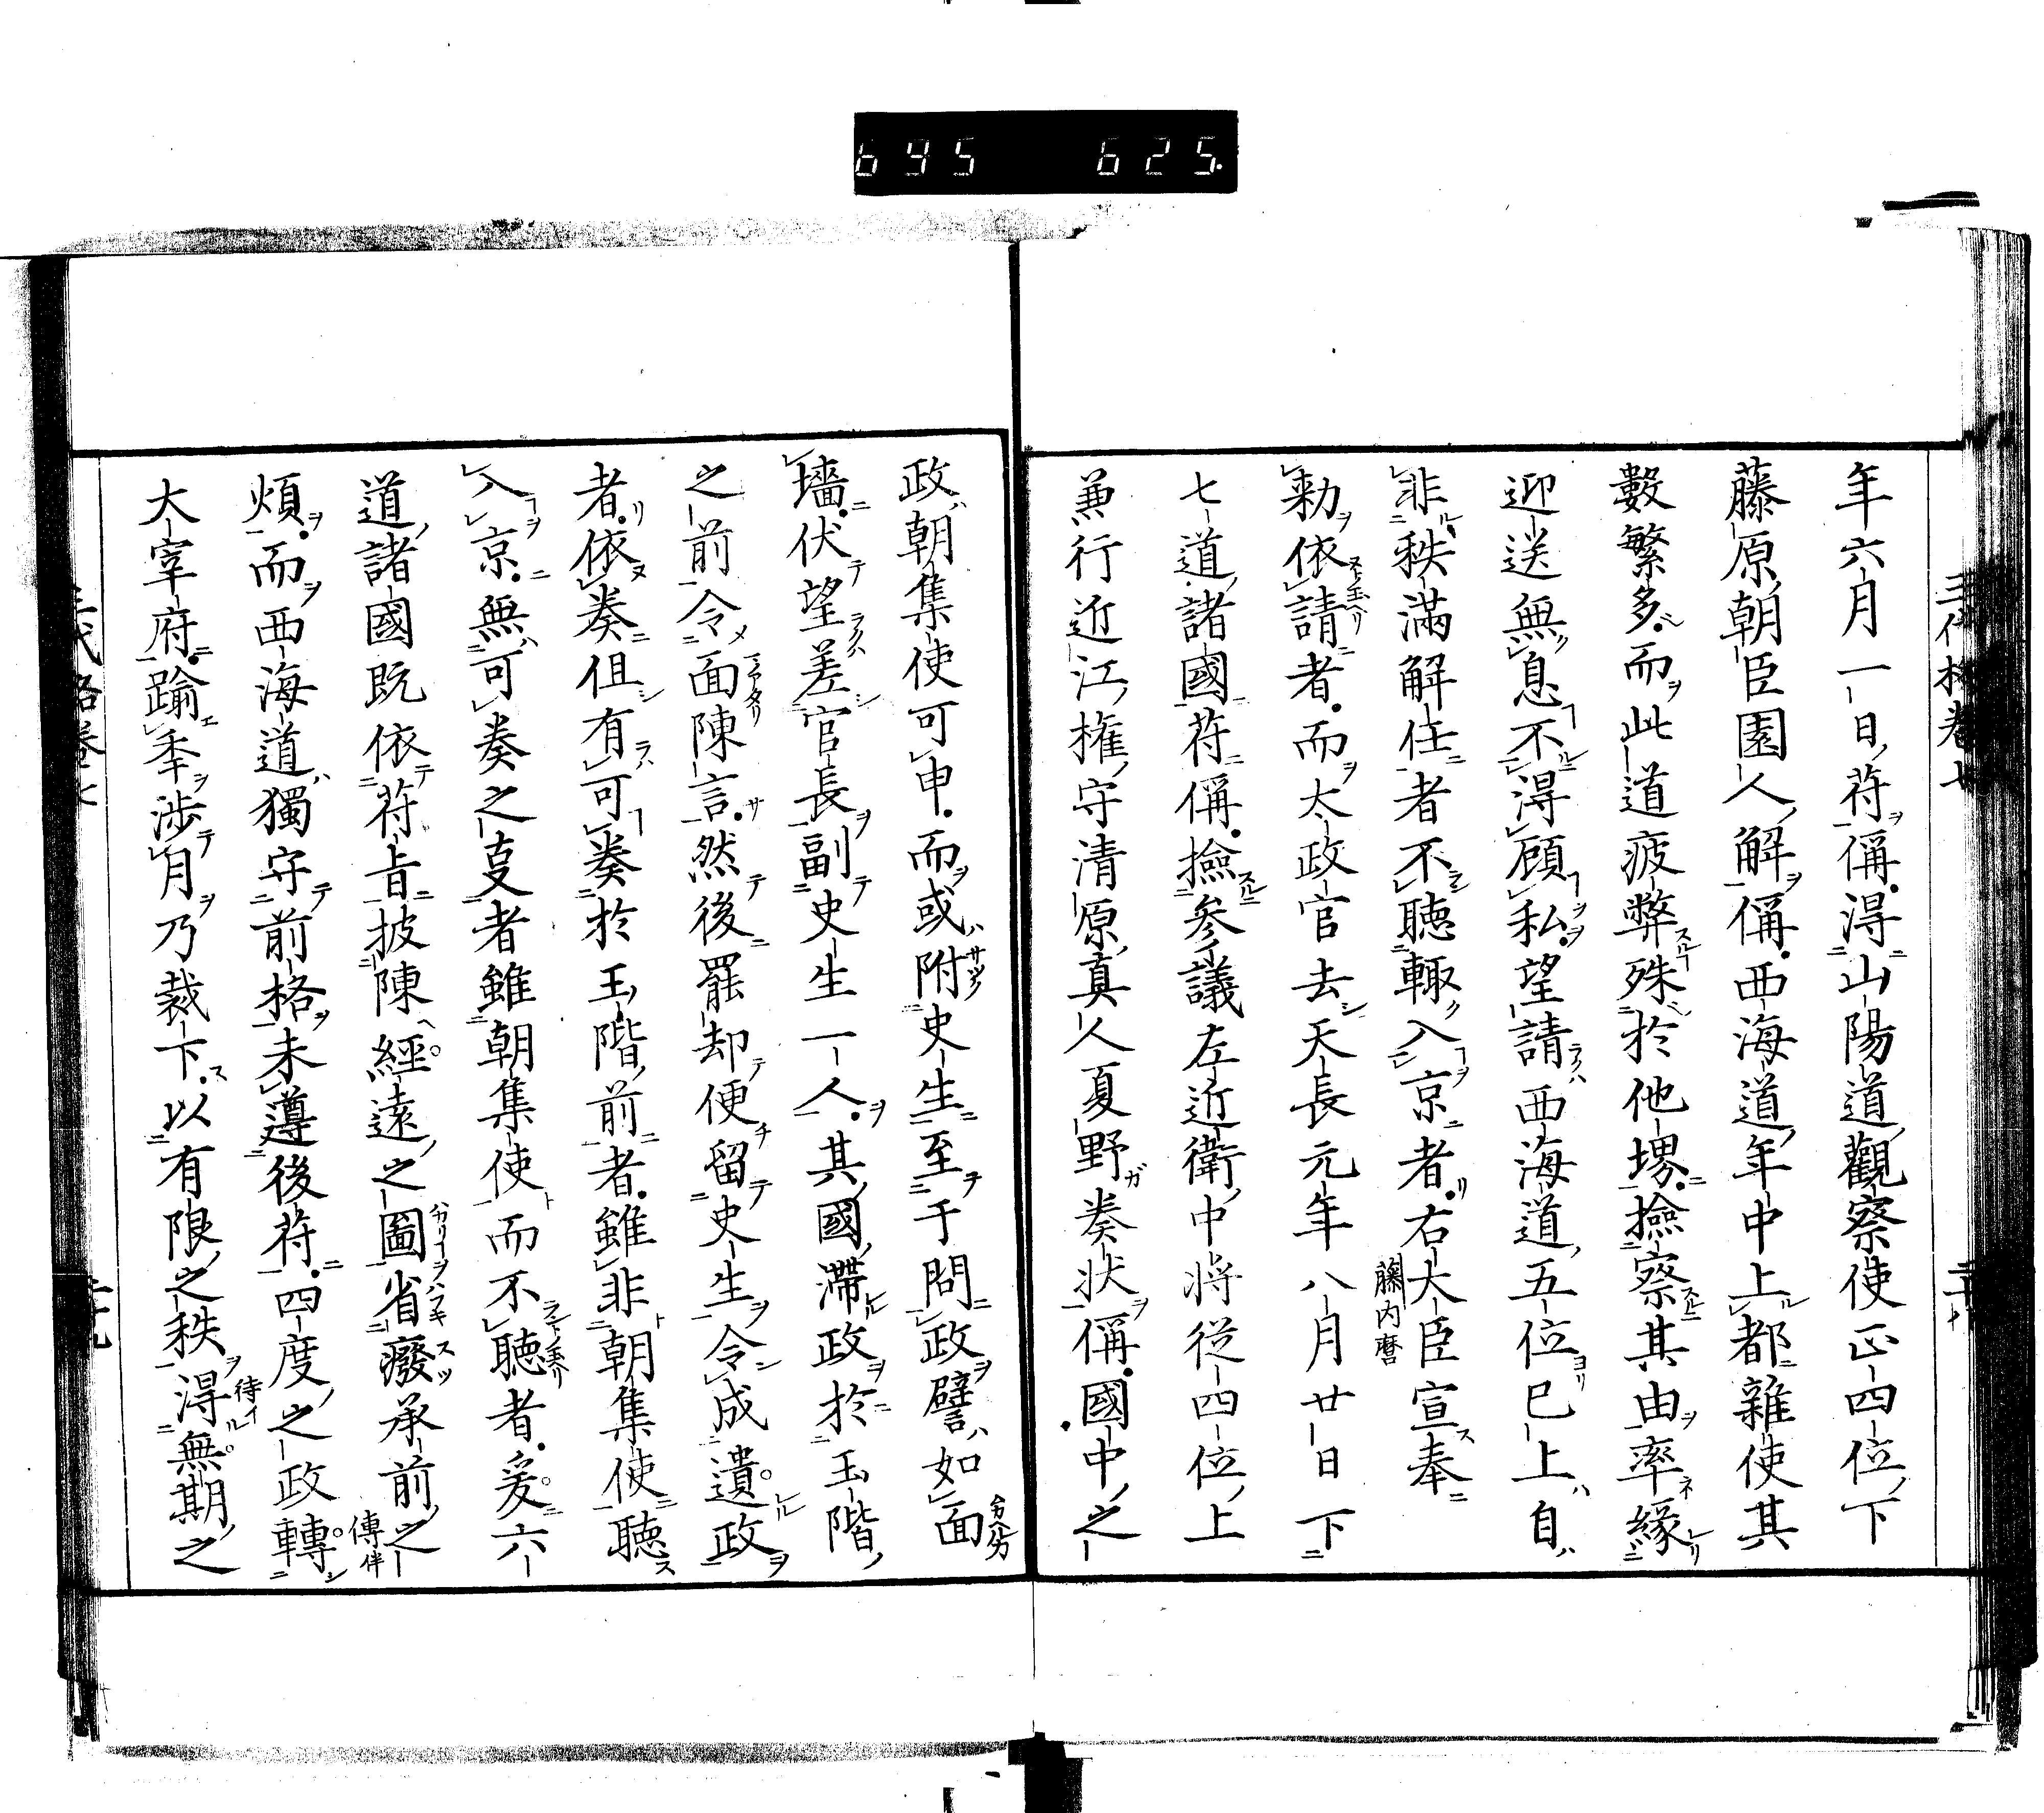 695 625.
三代格卷七
年六月一日符偁得山陽道觀察使正四位下
藤原朝臣園人解偁西海道年中上都雜使其
數繁多而此道疲弊殊於他堺撿察其由率緣
迎送無息不得顧私望請西海道五位已上自
非秩滿解任者不聽輙入京者右大臣宣奉
藤内麿
勅依請者而太政官去天長元年八月廿日下
七道諸國符偁撿參議左近衞中將從四位上
兼行近江權守清原真人夏野奏状偁國中之
政朝集使可申而或附史生至于問政譬如面
墻伏望差官長副史生一人其國滯政於玉階
之前令面陳言然後罷却便留史生令成遺政
者依奏但有可奏於玉階前者雖非朝集使聽
入京無可奏之㕝者雖朝集使而不聽者爰六
道諸國既依符旨披陳經遠之圖省癈承前之
傳伴
煩而西海道獨守前格未遵後符四度之政轉
大宰府踰季渉月乃裁下以有限之秩得無期之
待イ